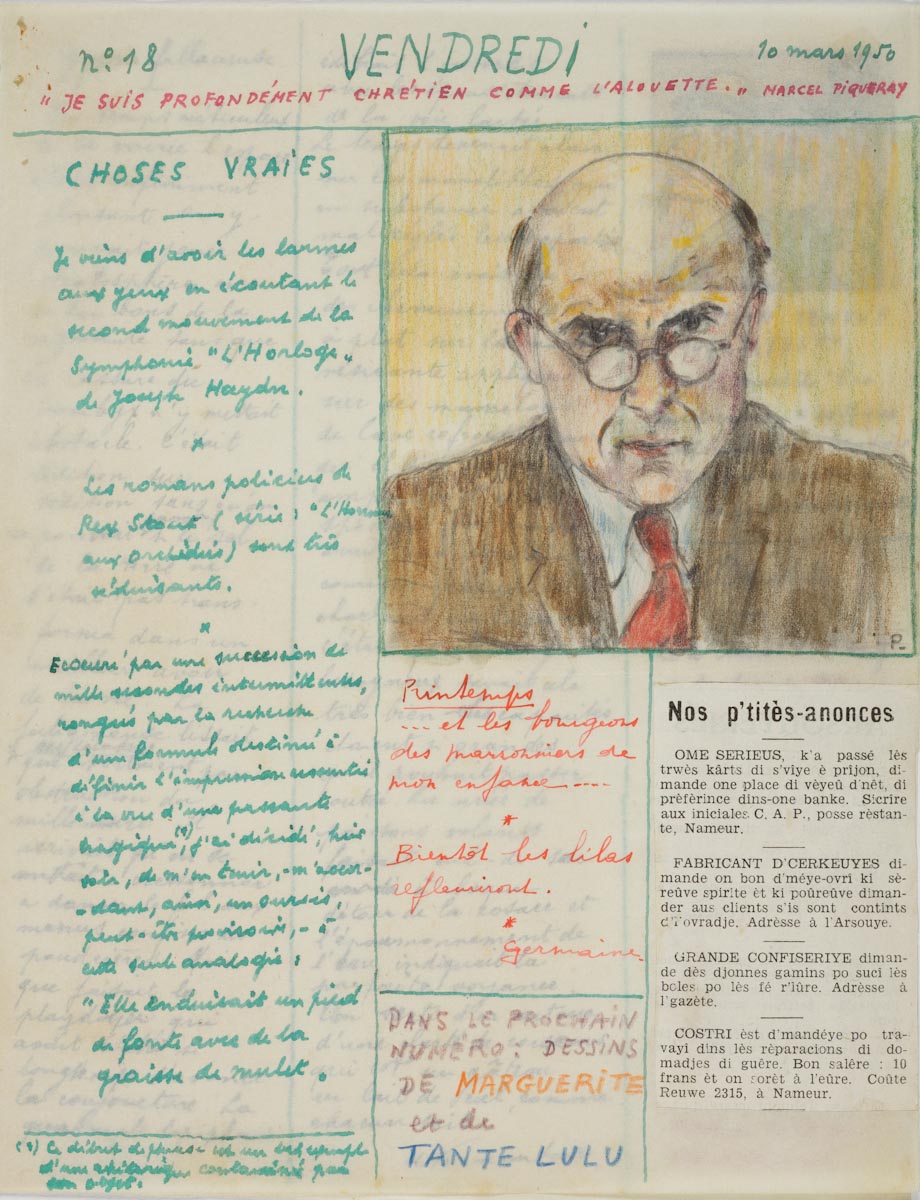 n° 18
VENDREDI
10 mars 1950
"JE SUIS PROFONDÉMENT CHRÉTIEN COMME L'ALOUETTE." MARCEL PIQUERAY
CHOSES VRAIES
Je viens d'avoir les larmes
aux yeux en écoutant le
second mouvement de la
Symphonie "L'Horloge"
de Joseph Haydn.
*
Les romans policiers de
Rex Stout (série : "L'Homme
aux Orchidées) sont très
séduisants.
*
Ecoeuré par une succession de
mille secondes intermittentes,
rongés par la recherche
d'une formule destinée à
définir l'impression ressentie
à la vue d'une passante
tragique (1), j'ai décidé, hier
soir, de m'en tenir, - m'accor-
-dant, ainsi, un sursis,
peut-être provisoire, - à
cette seule analogie :
"Elle enduisait un pied
de fonte avec de la
graisse de mulet.
(1) Ce début de phrase est un bel exemple
d'une rhétorique contaminée par
son objet.
P-
Printemps
... et les bourgeons
des marronniers de
mon enfance ....
*
Bientôt les lilas
refleuriront.
*
Germaine.
DANS LE PROCHAIN
NUMÉRO : DESSINS
DE MARGUERITE
et de
TANTE LULU
Nos p'titès-anonces
OME SERIEUS, k'a passé lès
trwès kârts di s'viye è prîjon, di-
mande one place di vèyeû d'nêt, di
préférince dins-one banke. Sicrire
aux iniciales C. A. P., posse rèstan-
te, Nameur.
FABRICANT D'CERKEUYES di-
mande on bon d'méye-ovrî ki sè-
reûve spirite èt ki poûreûve diman-
der aus clients s'is sont contints
d'l'ovradje. Adrèsse à l'Arsouye.
GRANDE CONFISERIYE diman-
de dès djonnes gamins po suci lès
boles po lès fé r'lûre. Adrèsse à
l'gazète.
COSTRI èst d'mandéye po tra-
vayî dins lès rèparacions di do-
madjes di guêre. Bon salêre : 10
frans èt on sorèt à l'eûre. Coûte
Reuwe 2315, à Nameur.